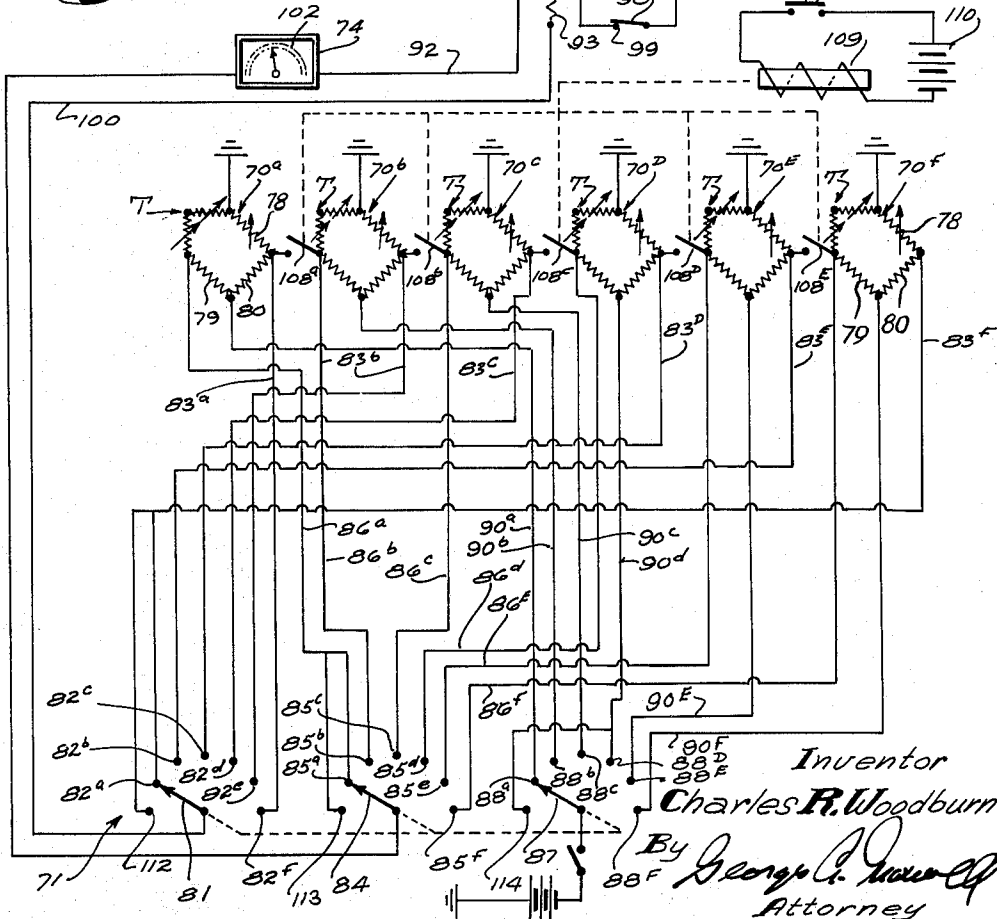 102
74
92
93
99
109
110
100
T 70a 78 T 70b T 70c T 70D T 70E T 70F 78
79 80 108a 108b 108F 108D 108E 79 80
83a 83b 83c 83D 83E 83F
86a 86b 86c 90a 90b 90c 90d
86d
86E
86F
90E
90F
82c 82b 82d 82e 82a
85c 85b 85d 85a 85e
88a 88b 88c 88D 88E
71 112 81 82F 113 84 85F 114 87 88F
Inventor
Charles R. Woodburn
By George
Attorney